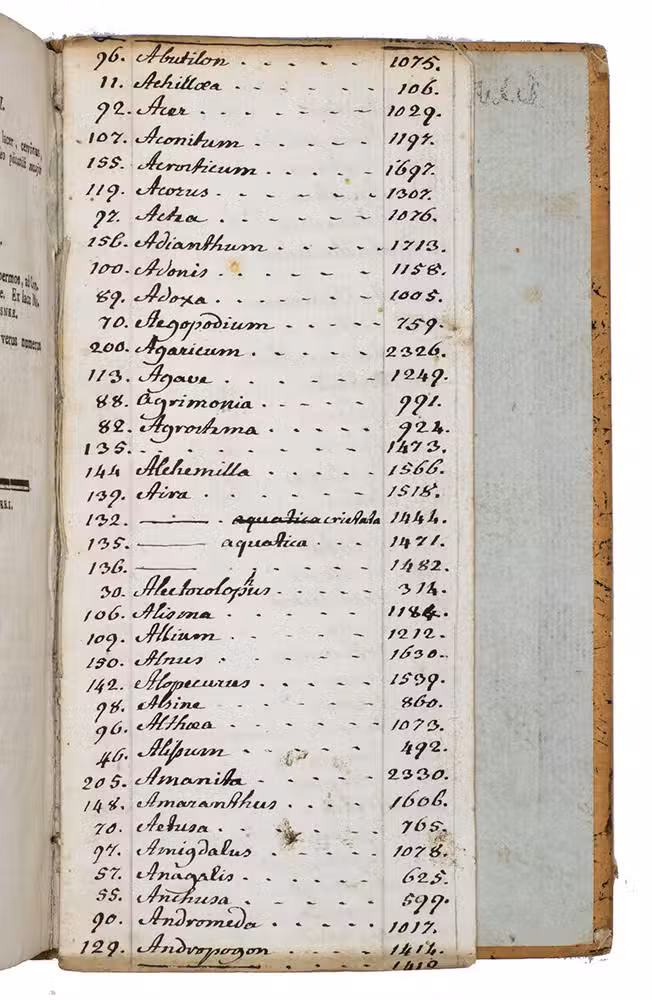 I.
lacer, cervinus,
permos, ad Gen.
e. Ex loco Ni.
verus numerus
96. Abutilon . . . . . 1075.
11. Achillæa . . . . . 106.
92. Acer . . . . . . 1029.
107. Aconitum . . . . . 1197.
155. Acrosticum . . . . 1697.
119. Acorus . . . . . . 1307.
97. Actea . . . . . . 1076.
156. Adianthum . . . . . 1713.
100. Adonis . . . . . . 1158.
89. Adoxa . . . . . . 1005.
70. Aegopodium . . . . 759.
200. Agaricum . . . . . 2326.
113. Agave . . . . . . 1249.
88. Agrimonia . . . . . 991.
82. Agrostema . . . . . 924.
135. . . . . . . . . 1473.
144 Alchemilla . . . . . 1566.
139. Aira . . . . . . . 1518.
132. —— . aquatica cristata 1444.
135. —— aquatica . . . 1471.
136. —— . . . . . . 1482.
30. Alectorolophus . . . . . 314.
106. Alisma . . . . . . 1184.
109. Allium . . . . . . 1212.
150. Alnus . . . . . . 1630.
142. Alopecurus . . . . . 1539.
98. Alsine . . . . . . 860.
96. Althæa . . . . . . 1073.
46. Alißum . . . . . . 492.
205. Amanita . . . . . . 2330.
148. Amaranthus . . . . 1606.
70. Aetusa . . . . . . 765.
97. Amigdalus . . . . . 1078.
57. Anagalis . . . . . . 625.
55. Anchusa . . . . . . 599.
90. Andromeda . . . . . 1017.
129. Andropogon . . . . 1414.